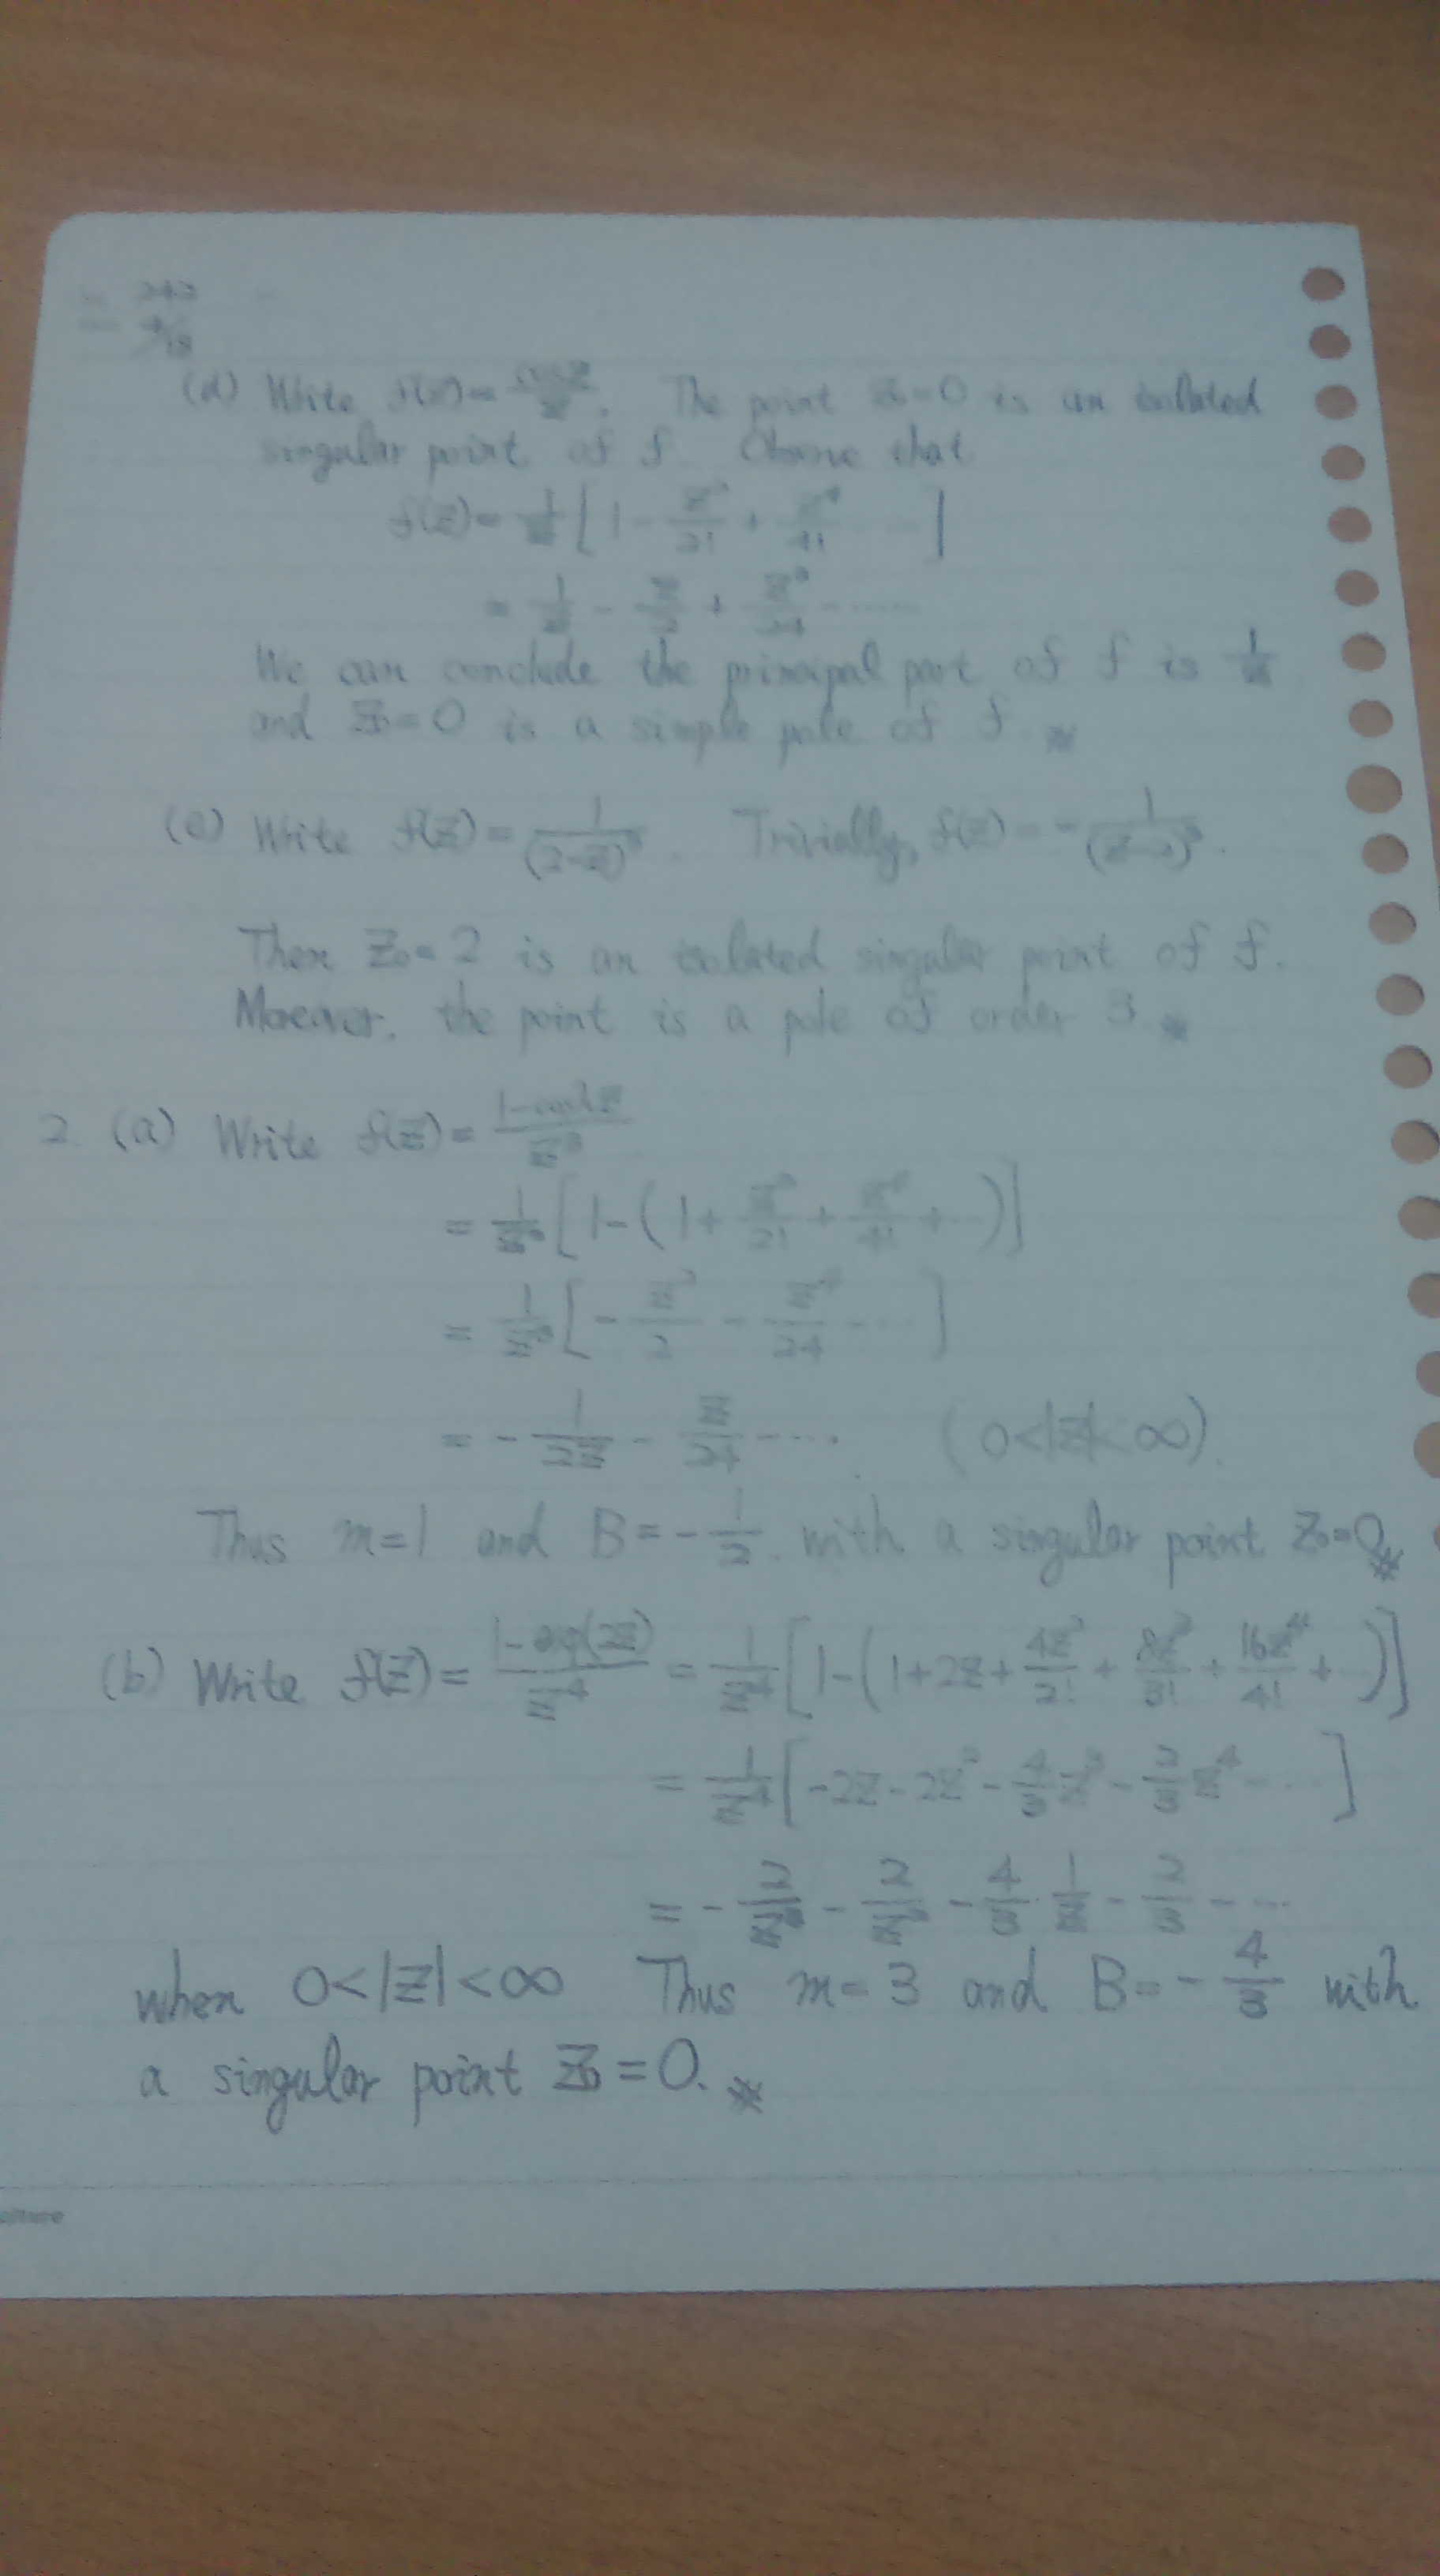 242
4/18
(d) Write f(z) = cos z / z. The point z₀=0 is an isolated
singular point of f. Observe that
f(z) = 1/z [1 - z²/2! + z⁴/4! ...]
= 1/z - z/2 + z³/24 - ......
We can conclude the principal part of f is 1/z
and z₀=0 is a simple pole of f. ※
(e) Write f(z) = 1/(2-z)³. Trivially, f(z) = - 1/(z-2)³.
Then z₀=2 is an isolated singular point of f.
Moreover, the point is a pole of order 3. ※
2. (a) Write f(z) = (1-cosh z)/z³
= 1/z³ [1-(1+ z²/2! + z⁴/4! + ...)]
= 1/z³ [- z²/2 - z⁴/24 - ...]
= - 1/2z - z/24 - .... (0<|z|<∞).
Thus m=1 and B=-1/2 with a singular point z₀=0 ※
(b) Write f(z) = (1-exp(2z))/z⁴ = 1/z⁴ [1-(1+2z+ 4z²/2! + 8z³/3! + 16z⁴/4! + ...)]
= 1/z⁴ [-2z - 2z² - 4/3 z³ - 2/3 z⁴ - ...]
= - 2/z³ - 2/z² - 4/3 · 1/z - 2/3 - ...
when 0<|z|<∞ Thus m=3 and B=-4/3 with
a singular point z₀=0. ※